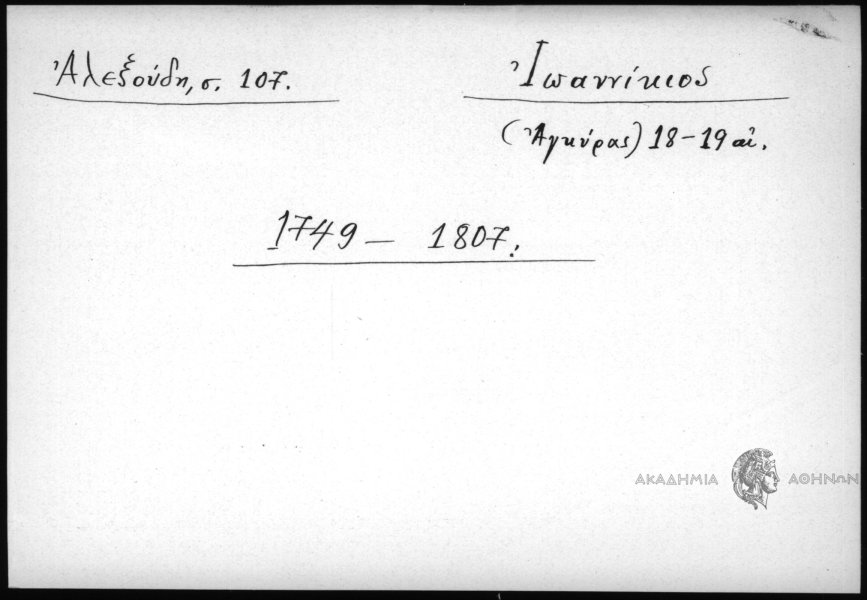 Ἀλεξούδη, σ. 107.
Ἰωαννίκιος
(Ἀγκύρας) 18-19 αἰ.
1749 — 1807.
ΑΚΑΔΗΜΙΑ ΑΘΗΝΩΝ